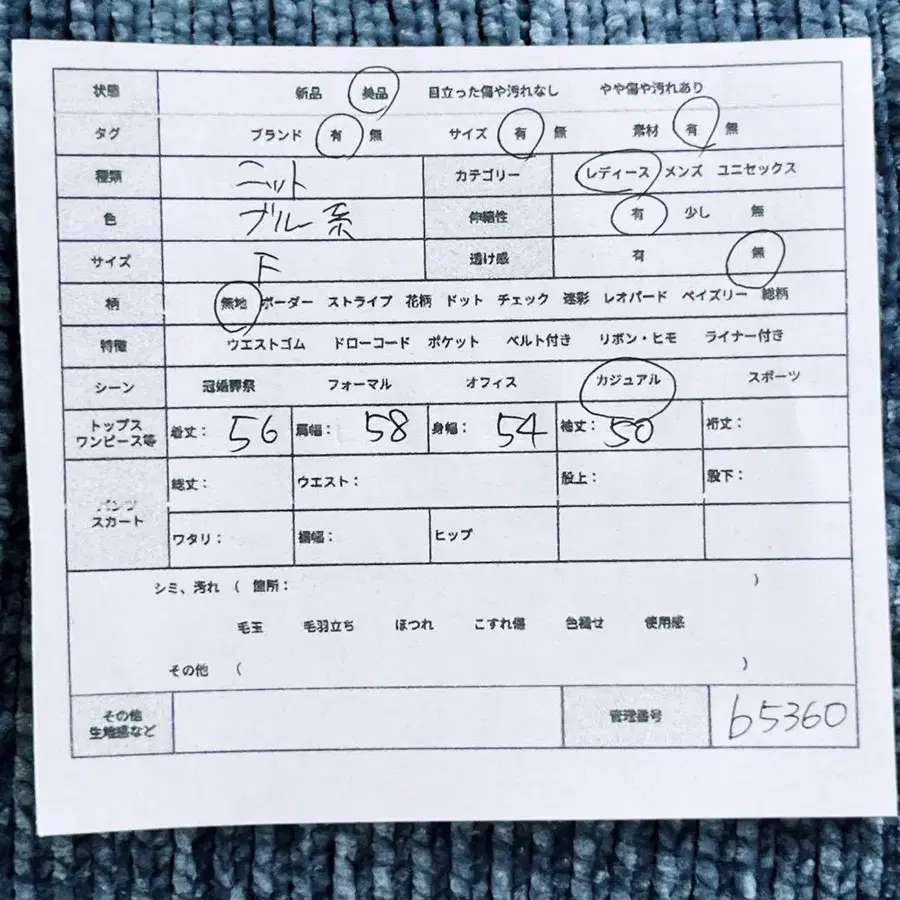 状態 新品 美品 目立った傷や汚れなし やや傷や汚れあり
タグ ブランド 有 無 サイズ 有 無 素材 有 無
種類 ニット カテゴリー レディース メンズ ユニセックス
色 ブルー系 伸縮性 有 少し 無
サイズ F 透け感 有 無
柄 無地 ボーダー ストライプ 花柄 ドット チェック 迷彩 レオパード ペイズリー 総柄
特徴 ウエストゴム ドローコード ポケット ベルト付き リボン・ヒモ ライナー付き
シーン 冠婚葬祭 フォーマル オフィス カジュアル スポーツ
トップス
ワンピース等 着丈: 56 肩幅: 58 身幅: 54 袖丈: 50 裄丈:
パンツ
スカート 総丈: ウエスト: 股上: 股下:
ワタリ: 裾幅: ヒップ
シミ、汚れ ( 箇所: )
毛玉 毛羽立ち ほつれ こすれ傷 色褪せ 使用感
その他 ( )
その他
生地感など 管理番号 b5360